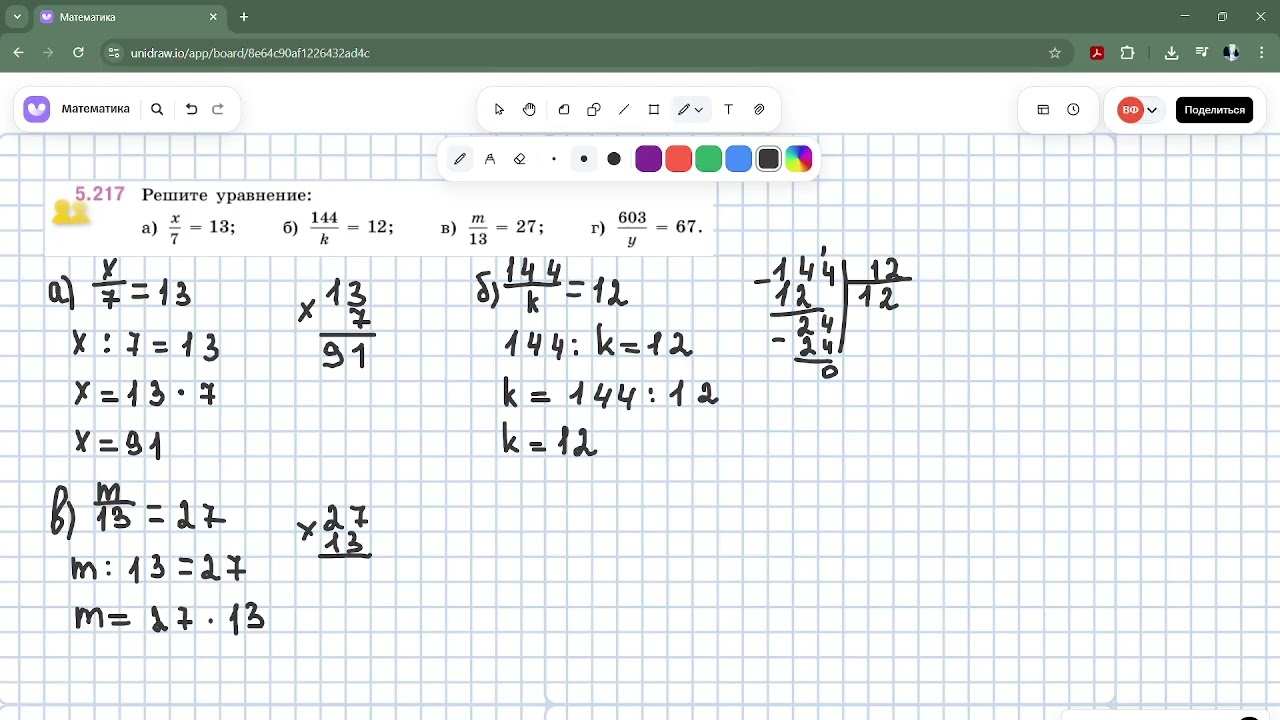 Математика
unidraw.io/app/board/8e64c90af1226432ad4c
Математика
T
ВФ
Поделиться
5.217 Решите уравнение:
22
а) x/7 = 13; б) 144/k = 12; в) m/13 = 27; г) 603/y = 67.
а) x/7 = 13
x : 7 = 13
x = 13 · 7
x = 91
× 13
7
91
б) 144/k = 12
144 : k = 12
k = 144 : 12
k = 12
- 144 | 12
12 | 12
- 24
24
0
в) m/13 = 27
m : 13 = 27
m = 27 · 13
× 27
13